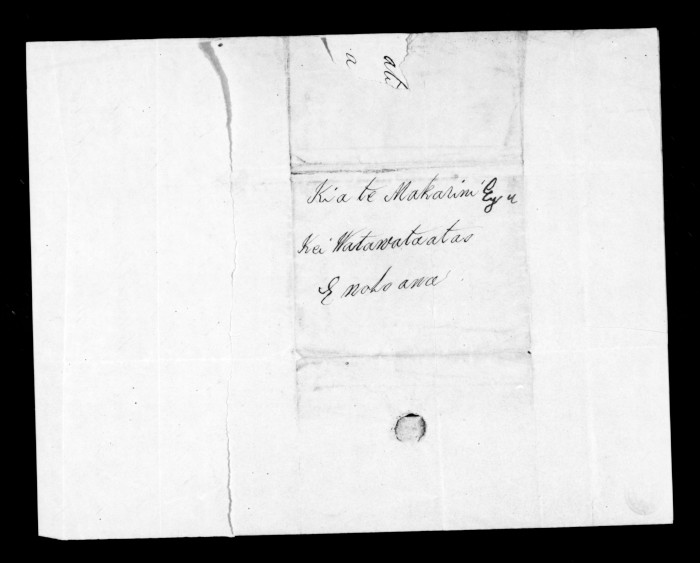 Kia te Makarini Esqu
Kei Watawataatas
E noho ana